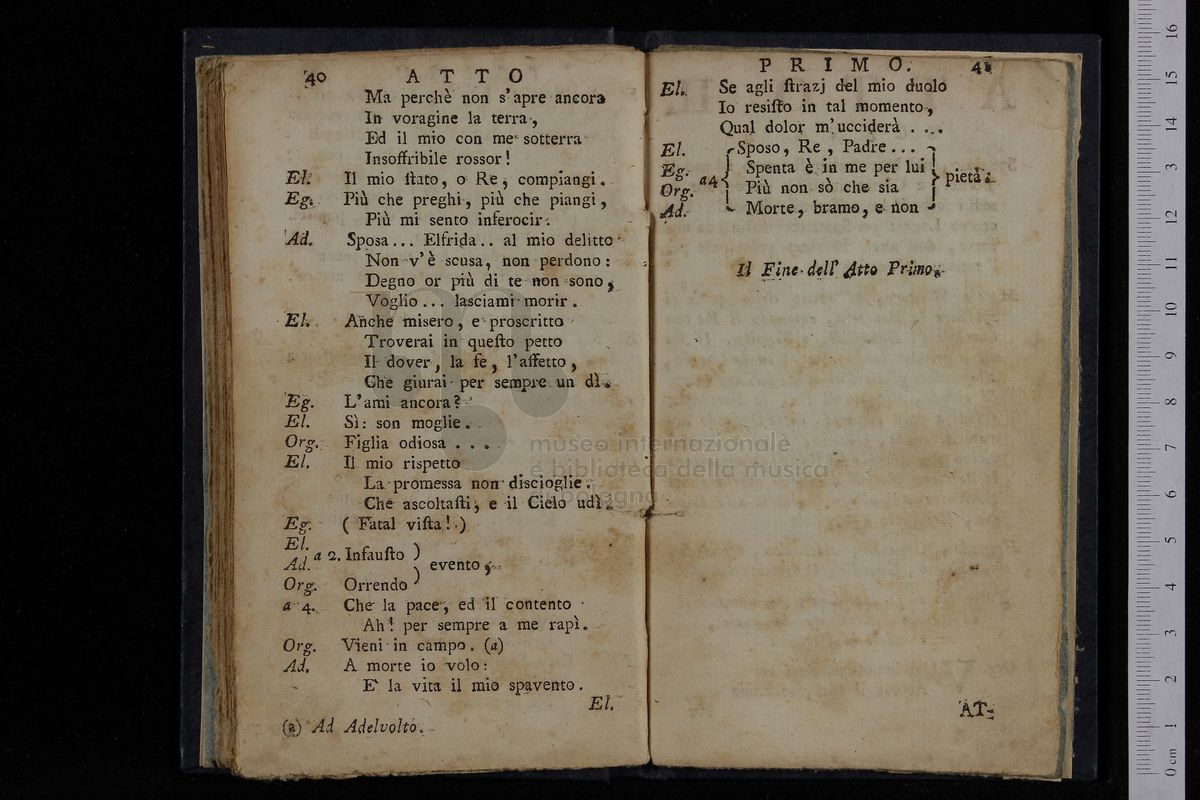 40 ATTO
Ma perchè non s'apre ancora
In voragine la terra,
Ed il mio con me sotterra
Insoffribile rossor!
El. Il mio ſtato, o Re, compiangi.
Eg. Più che preghi, più che piangi,
Più mi sento inferocir.
Ad. Sposa... Elfrida.. al mio delitto
Non v'è scusa, non perdono:
Degno or più di te non sono,
Voglio... lasciami morir.
El. Anche misero, e proscritto
Troverai in queſto petto
Il dover, la fe, l'affetto,
Che giurai per sempre un dì.
Eg. L'ami ancora?
El. Sì: son moglie.
Org. Figlia odiosa . . .
El. Il mio rispetto
La promessa non discioglie.
Che ascoltaſti, e il Cielo udì.
Eg. ( Fatal viſta! )
El.
Ad. a 2. Infauſto ) evento,
Org. Orrendo )
a 4. Che la pace, ed il contento
Ah! per sempre a me rapì.
Org. Vieni in campo. (a)
Ad. A morte io volo:
E' la vita il mio spavento.
El.
(a) Ad Adelvolto.
PRIMO. 41
El. Se agli ſtrazj del mio duolo
Io resiſto in tal momento,
Qual dolor m'ucciderà ....
El. Sposo, Re, Padre...
Eg. Spenta è in me per lui
a4 pietà.
Org. Più non sò che sia
Ad. Morte, bramo, e non
Il Fine dell' Atto Primo.
AT-
museo internazionale
e biblioteca della musica
bologna
0 cm 1 2 3 4 5 6 7 8 9 10 11 12 13 14 15 16